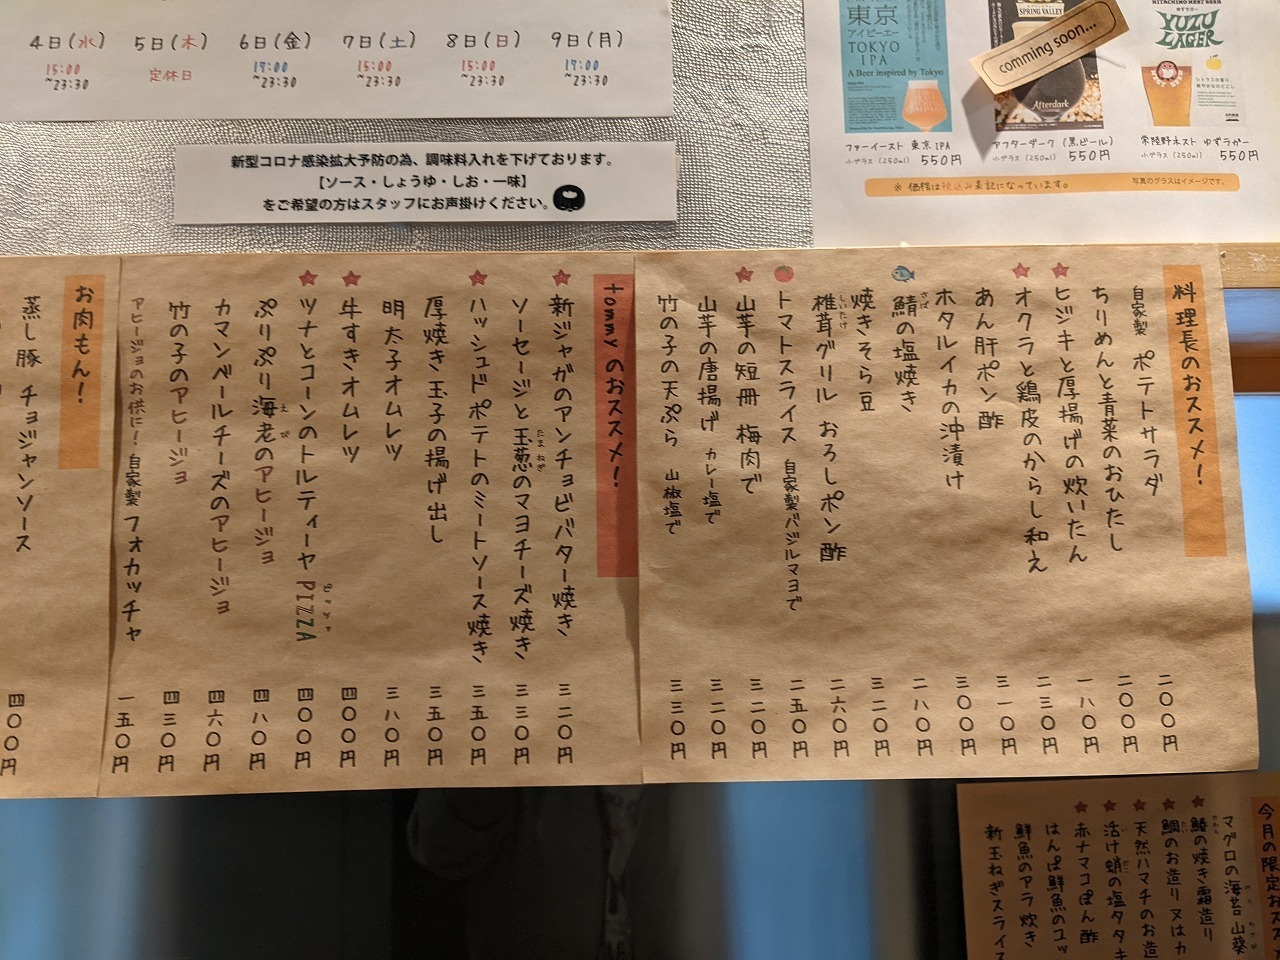 4日(水) 5日(木) 6日(金) 7日(土) 8日(日) 9日(月)
15:00 ~23:30 定休日 17:00 ~23:30 15:00 ~23:30 15:00 ~23:30 17:00 ~23:30
新型コロナ感染拡大予防の為、調味料入れを下げております。
【ソース・しょうゆ・しお・一味】
をご希望の方はスタッフにお声掛けください。
東京
アイピーエー
TOKYO
IPA
A Beer inspired by Tokyo
SPRING VALLEY
comming soon...
Afterdark
HITACHINO NEST BEER
YUZU
LAGER
ファーイースト 東京IPA
小グラス(250ml) 550円
アフターダーク(黒ビール)
小グラス(250ml) 550円
常陸野ネスト ゆずラガー
小グラス(250ml) 550円
※ 価格は税込み表記になっています。
写真のグラスはイメージです。
料理長のおススメ!
自家製 ポテトサラダ 二〇〇円
ちりめんと青菜のおひたし 二〇〇円
ヒジキと厚揚げの炊いたん 一八〇円
オクラと鶏皮のからし和え 二三〇円
あん肝ポン酢 三一〇円
ホタルイカの沖漬け 三〇〇円
鯖の塩焼き 二八〇円
さば
焼きそら豆 三二〇円
椎茸グリル おろしポン酢 二六〇円
しいたけ
トマトスライス 自家製バジルマヨで 二五〇円
山芋の短冊 梅肉で 三二〇円
山芋の唐揚げ カレー塩で 三二〇円
竹の子の天ぷら 山椒塩で 三三〇円
tommyのおススメ!
新ジャガのアンチョビバター焼き 三二〇円
ソーセージと玉葱のマヨチーズ焼き 三三〇円
たまねぎ
ハッシュドポテトのミートソース焼き 三五〇円
厚焼き玉子の揚げ出し 三五〇円
明太子オムレツ 三八〇円
牛すきオムレツ 四〇〇円
ツナとコーンのトルティーヤPIZZA 四〇〇円
ピッツァ
ぷりぷり海老のアヒージョ 四八〇円
えび
カマンベールチーズのアヒージョ 四六〇円
竹の子のアヒージョ 四三〇円
アヒージョのお供に!自家製 フォカッチャ 一五〇円
お肉もん!
蒸し豚 チョジャンソース 四〇〇円
今月の限定おスス
マグロの海苔山葵
のりわさび
鰆の焼き霜造り
さわら
鯛のお造り又はカ
たい
天然ハマチのお造
活け蛸の塩タタキ
赤ナマコぽん酢
はんぱ鮮魚のユッ
鮮魚のアラ炊き
新玉ねぎスライス